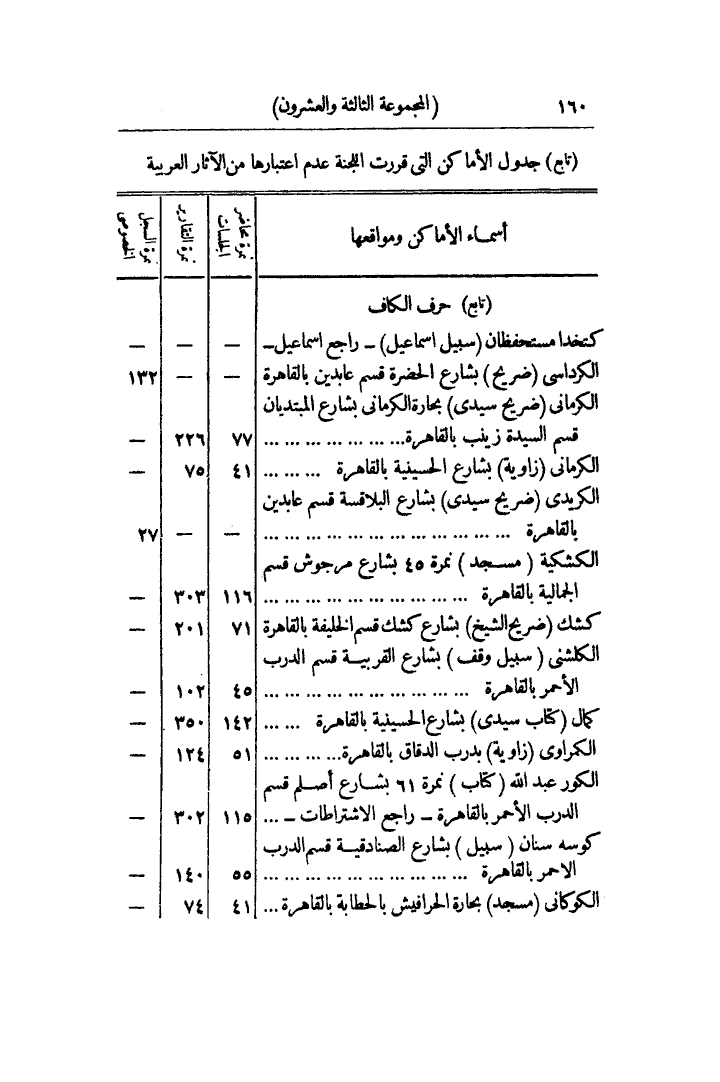 ١٦٠ (المجموعة الثالثة والعشرون)
(تابع) جدول الأماكن التى قررت اللجنة عدم اعتبارها من الآثار العربية
أسماء الأماكن ومواقعها | نمرة محاضر الجلسات | نمرة التقارير | نمرة السجل الخصوصى
(تابع) حرف الكاف
كتخدا مستحفظان (سبيل اسماعيل) ــ راجع اسماعيل ــ — — —
الكرداسى (ضريح) بشارع الحضرة قسم عابدين بالقاهرة — — ١٣٢
الكرمانى (ضريح سيدى) بحارة الكرمانى بشارع المبتديان
قسم السيدة زينب بالقاهرة... ... ... ... ... ... ... ٧٧ ٢٢٦ —
الكرمانى (زاوية) بشارع الحسينية بالقاهرة ... ... ... ٤١ ٧٥ —
الكريدى (ضريح سيدى) بشارع البلاقسة قسم عابدين
بالقاهرة ... ... ... ... ... ... ... ... ... ... ... ... — — ٢٧
الكشكية ( مسجد ) نمرة ٤٥ بشارع مرجوش قسم
الجمالية بالقاهرة ... ... ... ... ... ... ... ... ... ... ١١٦ ٣٠٣ —
كشك (ضريح الشيخ) بشارع كشك قسم الخليفة بالقاهرة ٧١ ٢٠١ —
الكلشنى ( سبيل وقف ) بشارع القربية قسم الدرب
الأحمر بالقاهرة ... ... ... ... ... ... ... ... ... ... ٤٥ ١٠٢ —
كمال (كتاب سيدى) بشارع الحسينية بالقاهرة ... ... ١٤٢ ٣٥٠ —
الكمراوى (زاوية) بدرب الدقاق بالقاهرة... ... ... ... ٥١ ١٢٤ —
الكور عبد الله ( كتاب ) نمرة ٦١ بشارع أصلم قسم
الدرب الأحمر بالقاهرة ــ راجع الاشتراطات ــ ... ١١٥ ٣٠٢ —
كوسه سنان ( سبيل ) بشارع الصنادقية قسم الدرب
الاحمر بالقاهرة ... ... ... ... ... ... ... ... ... ... ٥٥ ١٤٠ —
الكوكانى (مسجد) بحارة الحرافيش بالحطابة بالقاهرة... ٤١ ٧٤ —